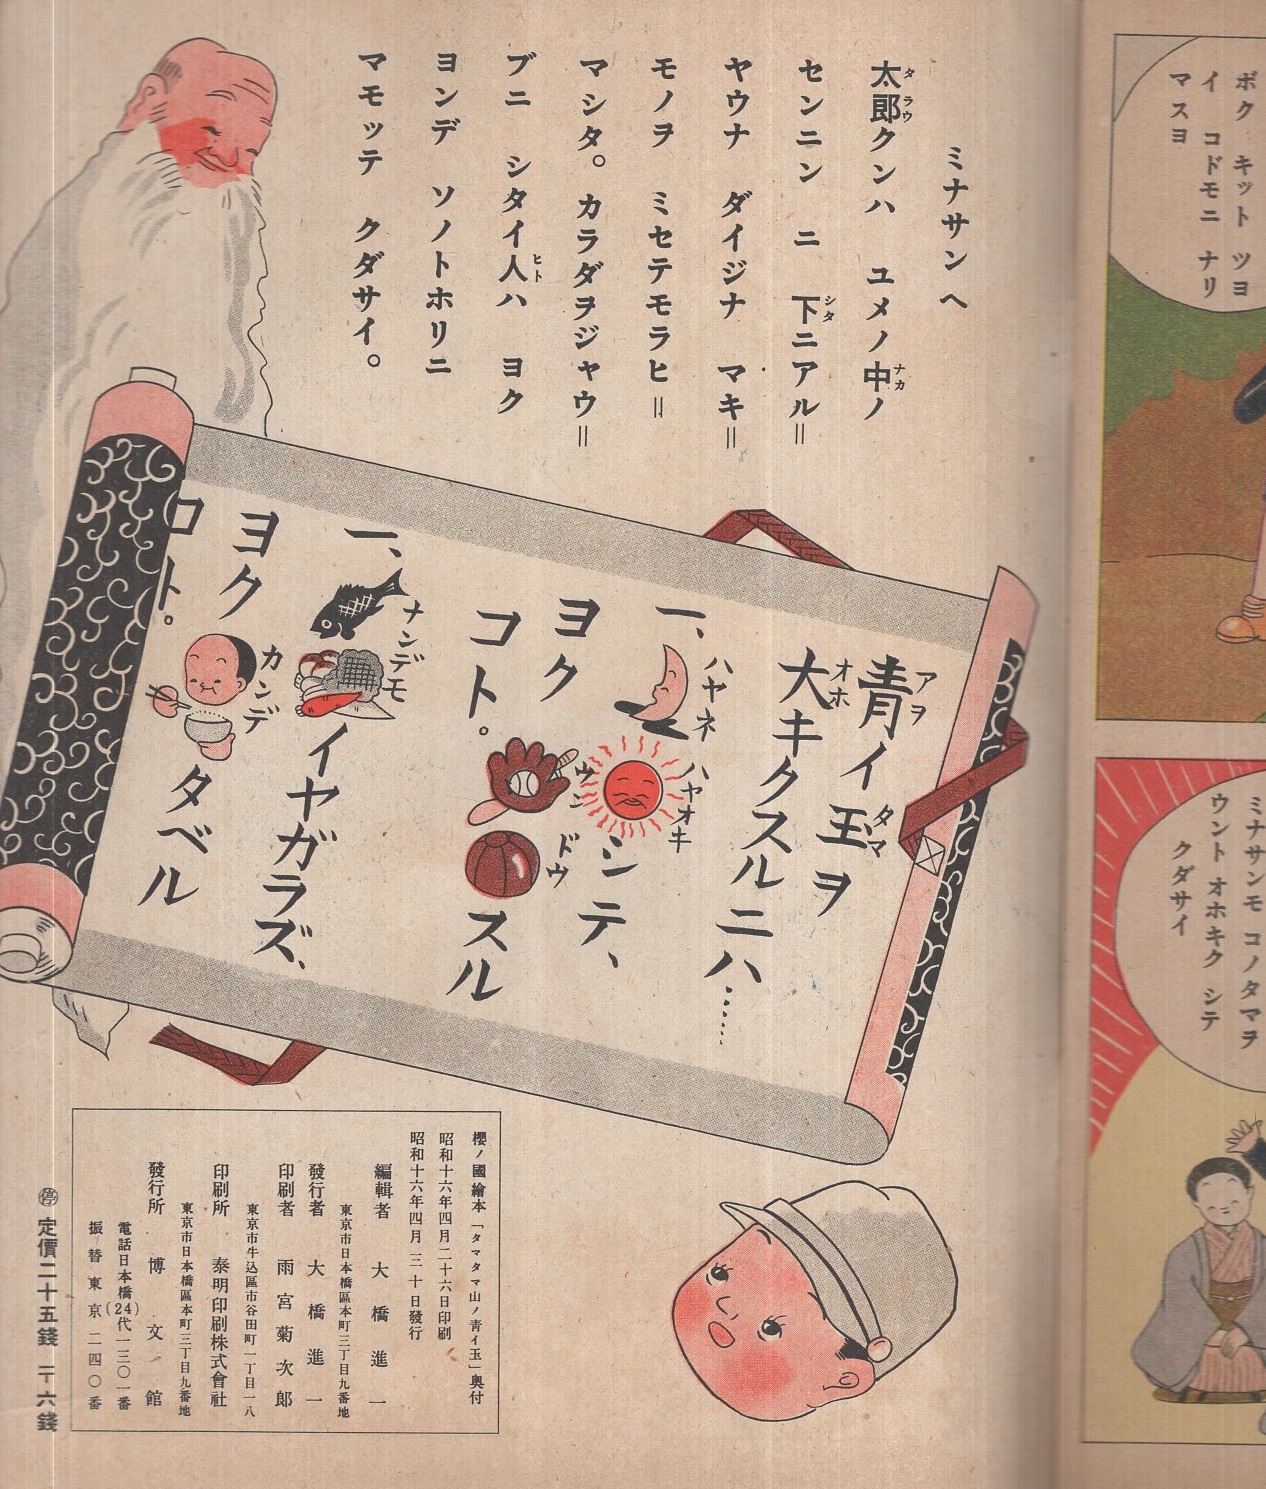 ボク キット ツヨ
イ コドモニ ナリ
マスヨ
ミナサンモ コノタマヲ
ウント オホキク シテ
クダサイ
ミナサンヘ
太郎クンハ ユメノ中ノ
タラウ
ナカ
センニン ニ 下ニアル=
シタ
ヤウナ ダイジナ マキ=
モノヲ ミセテモラヒ=
マシタ。カラダヲジャウ=
ブニ シタイ人ハ ヨク
ヒト
ヨンデ ソノトホリニ
マモッテ クダサイ。
青イ玉ヲ
アヲ
タマ
大キクスルニハ……
オホ
一、ハヤネ ハヤオキ シテ、
ヨク ウンドウ スル
コト。
一、ナンデモ イヤガラズ、
ヨク カンデ タベル
コト。
櫻ノ國繪本「タマタマ山ノ青イ玉」奥付
昭和十六年四月二十六日印刷
昭和十六年四月三十日發行
編輯者 大橋進一
東京市日本橋區本町三丁目九番地
發行者 大橋進一
印刷者 雨宮菊次郎
東京市牛込區市谷田町一丁目一八
印刷所 泰明印刷株式會社
東京市日本橋區本町三丁目九番地
發行所 博文館
電話日本橋(24)代一三〇一番
振替東京二四〇番
㊡ 定價二十五錢 〒六錢